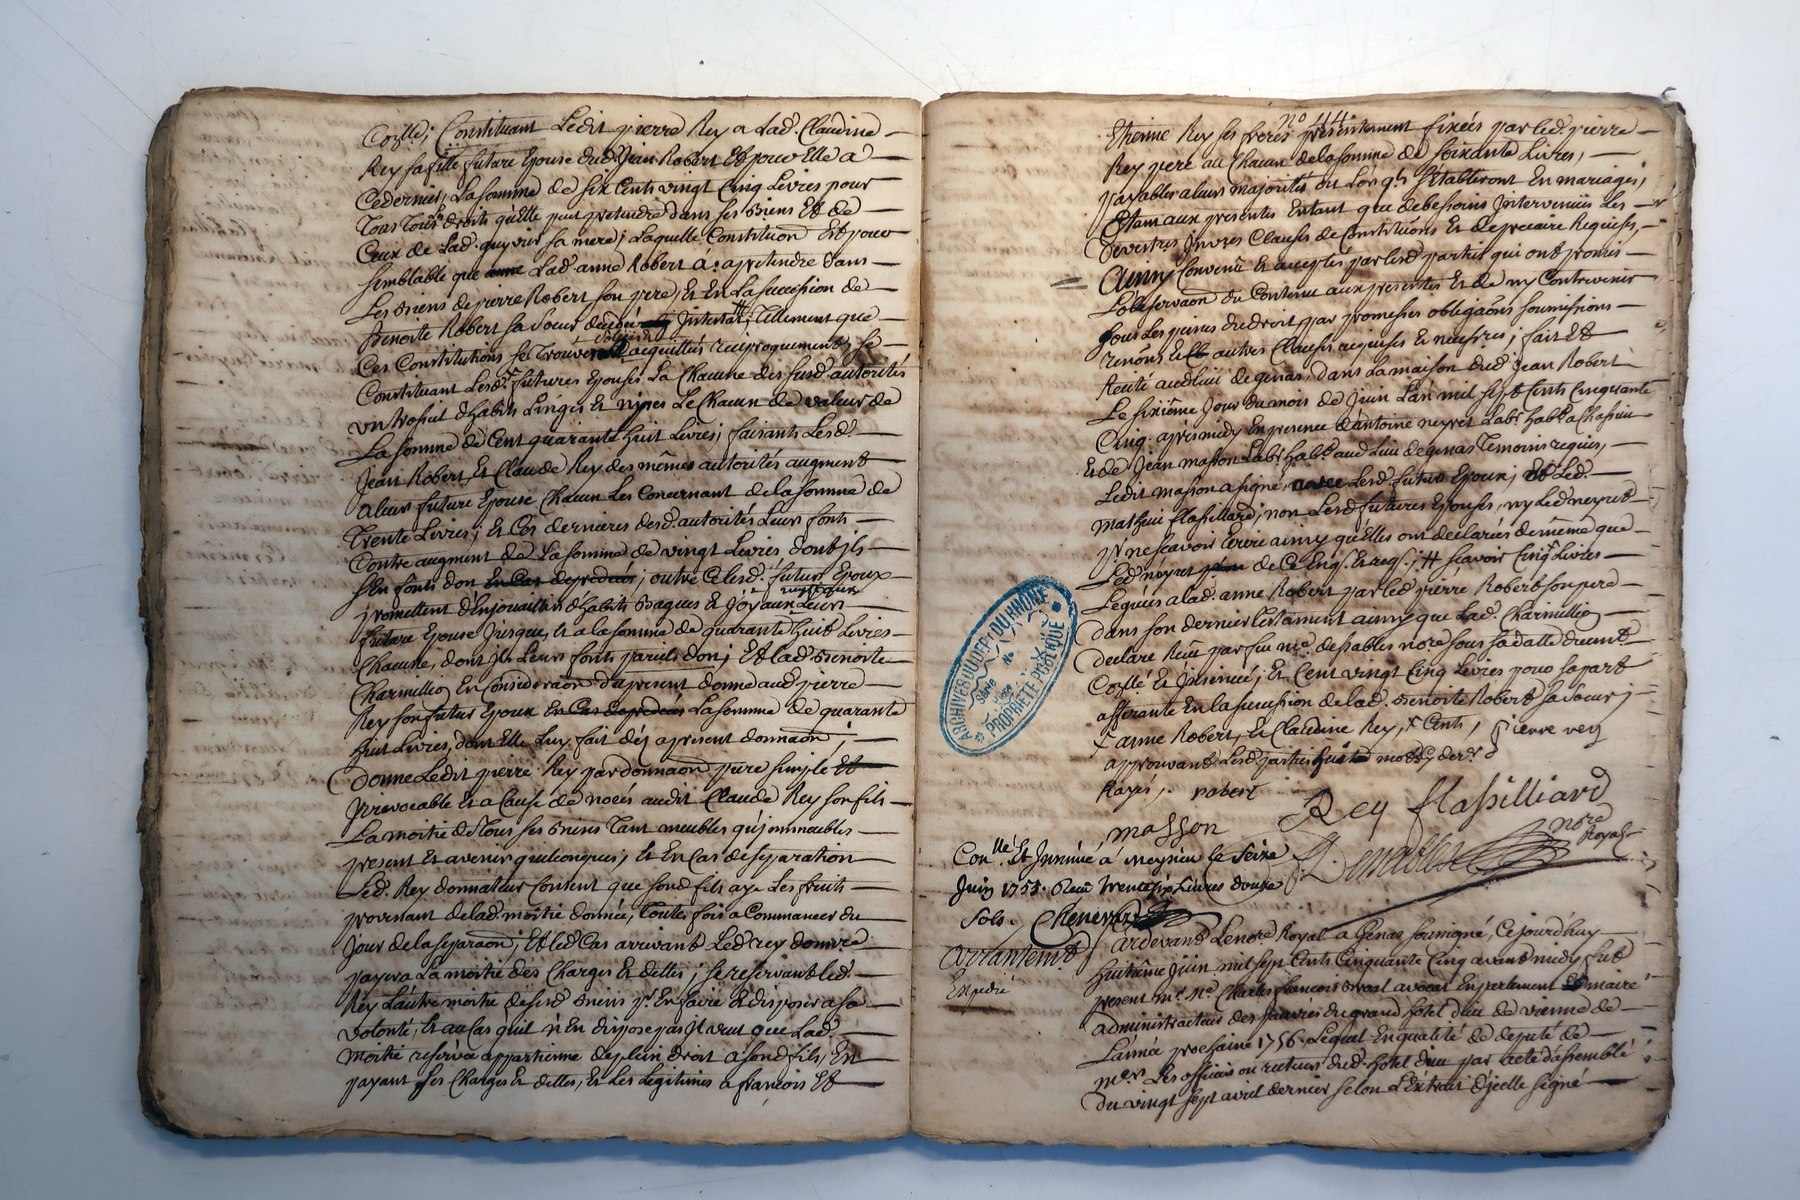 Constituant Ledit pierre Rey a Lad. Claudine
Rey sa fille future Epouse dud. Jean Robert Et pour Elle a
Ce dernier, La somme de six Cents vingt Cinq Livres pour
Tous droits qu'Elle peut pretendre dans ses Biens Et de
Ceux de Lad. sa mere; Laquelle Constituon Est pour
semblable que Lad. anne Robert a apretendre dans
Les Biens de pierre Robert son pere, Et En La succession de
Benoite Robert sa soeur Intestat; tellement que
Ces Constitutions se Trouvent acquittées reciproquement, se
Constituant Lesd. futures Epouses La Chacune des susd. autorités
un trossel d'habits Linges Et nipes Le Chacun de valeur de
La somme de Cent quarante huit Livres; faisants Lesd.
Jean Robert, Et Claude Rey des mêmes autorités augment
a leur future Epouse Chacun Les Concernant de la somme de
Trente Livres; Et Ces dernieres desd. autorités Leur font
Contre augment de La somme de vingt Livres dont ils
s'En font don En Cas de; outre ce Lesd. futurs Epoux
promettent d'Enjouailler d'habits Bagues Et Joyaux Leurs
future Epouse Jusque, Et a la somme de quarante huit Livres
Chacune, dont ils Leurs fonts pareils don; Et Lad. Benoite
Charmillio En Consideraon d'apresent donne aud. pierre
Rey son futur Epoux La somme de quarante
huit Livres, dont Elle Luy fait déz apresent donnaon;
Donne Ledit pierre Rey par donnaon pure simple Et
Irrevocable Et a Cause de noces audit Claude Rey son fils
La moitié de Tous ses Biens Tant meubles qu'jmmeubles
present Et avenir quelconques; Et En Cas de separation
Led. Rey donnateur Consent que sond. fils aye Les fruits
provenant de lad. moitié donnée, Toutes fois a Commancer du
Jour de la separaon; Et led. Cas arrivant Led. rey donnre
payera La moitié des Charges Et dettes; se reservant led.
Rey L'autre moitié de sesd. Biens pr. En faire Et disposer a sa
volonté, Et au Cas quil n'En dispose pas Il veut que Lad.
Moitié reservée appartienne de plein droit a sond. fils, En
payant ses Charges Et dettes, Et Les Legitimes a françois Et
No 44
Etienne Rey ses freres presentement fixées par led. pierre
Rey pere au Chacun de la somme de soixante Livres,
payables a leurs majorités ou Lors qls. s'Etabliront En mariages;
Etant aux presentes Entant que de besoins Intervenues les
Devestres Invres Clauses de Constitutions Et de precaire Requises,
Ainsy Convenu Et acceptés par lesd. parties qui ont promis
L'observaon du Contenu aux presentes Et de ny Contrevenir
sous Les peines du droit, par promesses obligaons soumissions
renons Et autres Clauses requises Et necessres; fait Et
recité aud. lieu de genas, dans La maison dud. Jean Robert
Le sixième Jour du mois de Juin L'an mil sept Cents Cinquante
Cinq. après midy En presence d'antoine neyret Labr. habt. a Chassieu
Et de Jean masson Labr. habt. aud. Lieu de genas Temoins requis,
Ledit masson a signé, avec Lesd. futurs Epoux; Et Led.
mathieu flassillard; non Lesd. futures Epouses, ny Led. neyret
pr. ne sçavoir Ecrire ainsy qu'Elles ont declarées de même que
Led. neyret de Ce Enqs. Et reqs.; # sçavoir Cinq. Livres
Leguées a lad. anne Robert par led. pierre Robert son pere
dans son dernier testament ainsy que Lad. Charmillio
declare Reçu par feu me. desables nore sous sa datte duement
Conllé Et Insinué; Et Cent vingt Cinq Livres pour sa part
afferante En la succession de lad. Benoite Robert sa soeur;
+ anne Robert, Et Claudine Rey, + Cents, pierre rey
approuvant Lesd. parties mots
Rayés. robert
Rey flassilliard
masson
Desables nore Royal
Conllé Et Insinué à meysieu le seize
Juin 1755. Reçu trente six Livres douze
sols. Chenevard
Arrantemt.
Expedié
Pardevant Le nore Royal a Genas soussigné, Ce jourd'huy
huitième Juin mil sept Cents Cinquante Cinq avant midy fut
present me. ne. Charles françois avocat En parlement Et maire
administrateur des pauvres du grand hôtel dieu de vienne de
L'année prochaine 1756. Lequel En qualité de deputé de
mers. Les officiers ou recteurs dud. hôtel dieu par acte d'assemblé
du vingt sept avril dernier selon L'Extrait d'jcelle signé
ARCHIVES DU DEPT DU RHONE
Série
No
PROPRIÉTÉ PUBLIQUE